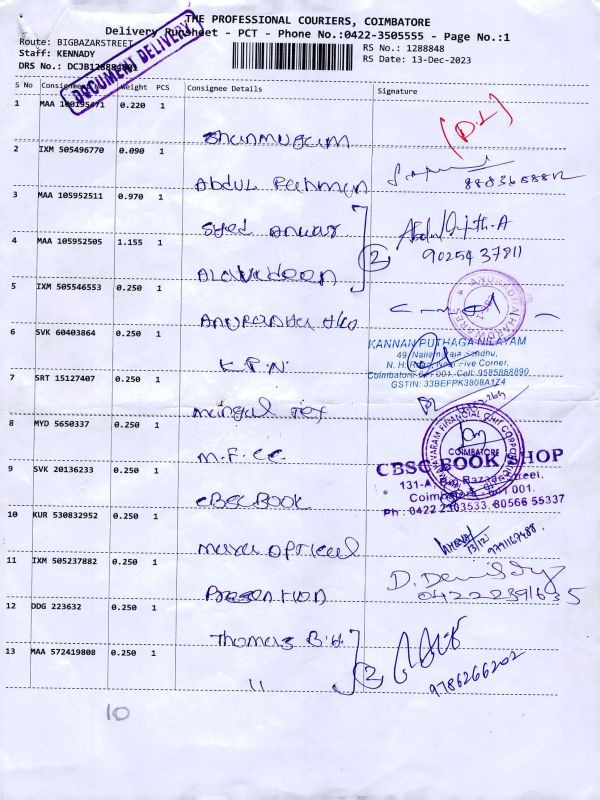 THE PROFESSIONAL COURIERS, COIMBATORE
Delivery Runsheet - PCT - Phone No.:0422-3505555 - Page No.:1
Route: BIGBAZARSTREET
RS No.: 1288848
Staff: KENNADY
RS Date: 13-Dec-2023
DRS No.: DCJB128884801
DOCUMENT DELIVERY
S No Consignment Weight PCS Consignee Details Signature
1 MAA 100195471 0.220 1
Shanmugam
(D.L)
2 IXM 505496770 0.090 1
Abdul Rehman
3 MAA 105952511 0.970 1
Syed Anwar
9025437811
4 MAA 105952505 1.155 1
2
5 IXM 505546553 0.250 1
6 SVK 60403864 0.250 1
K.P.N.
KANNAN PUTHAGA NILAYAM
49, Nallam Raja Sandhu,
N. H. Road, Near Five Corner,
Coimbatore 641 001. Cell: 9585888890
GSTIN: 33BEFPK3808A1Z4
7 SRT 15127407 0.250 1
8 MYD 5650337 0.250 1
M.F.CC.
COIMBATORE
9 SVK 20136233 0.250 1
CBSC BOOK
CBSC BOOK SHOP
131-A, Big Bazaar Street,
Coimbatore - 641 001.
Ph : 0422 2303533, 80566 55337
10 KUR 530832952 0.250 1
optical
13/12
9791167488
11 IXM 505237882 0.250 1
04222391635
12 DDG 223632 0.250 1
Thomas
13 MAA 572419808 0.250 1
"
2
9786266202
10